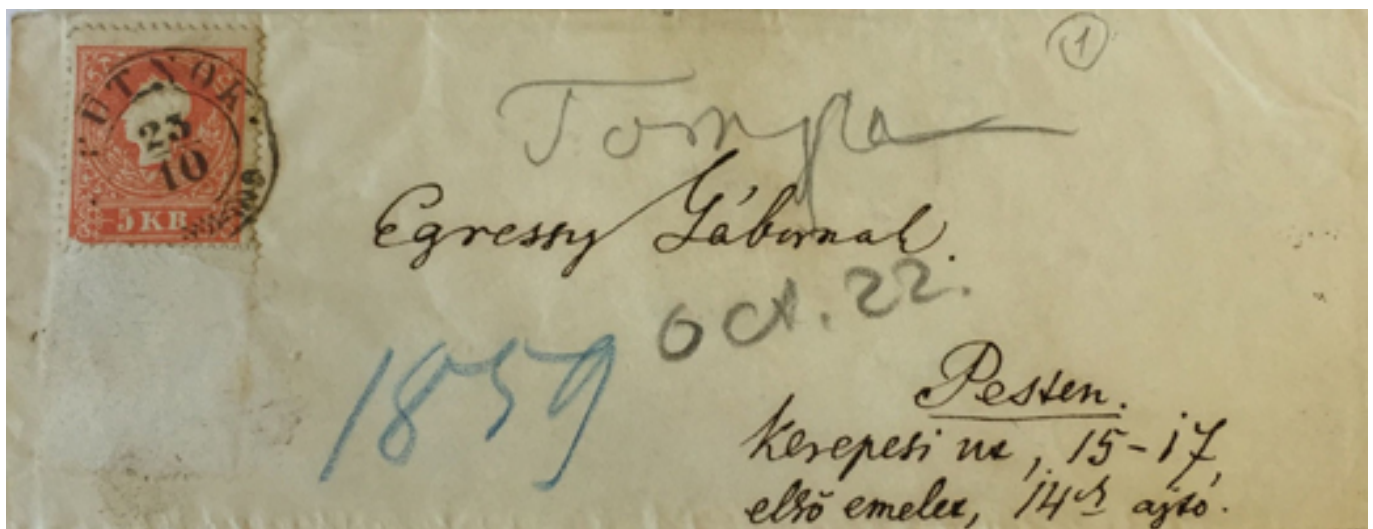 1
PUTNOK
23
10
5 KR
Tompa
Egressy Gábornak.
oct. 22.
1859
Pesten.
Kerepesi ut, 15-17,
első emelet, 14ik ajtó.